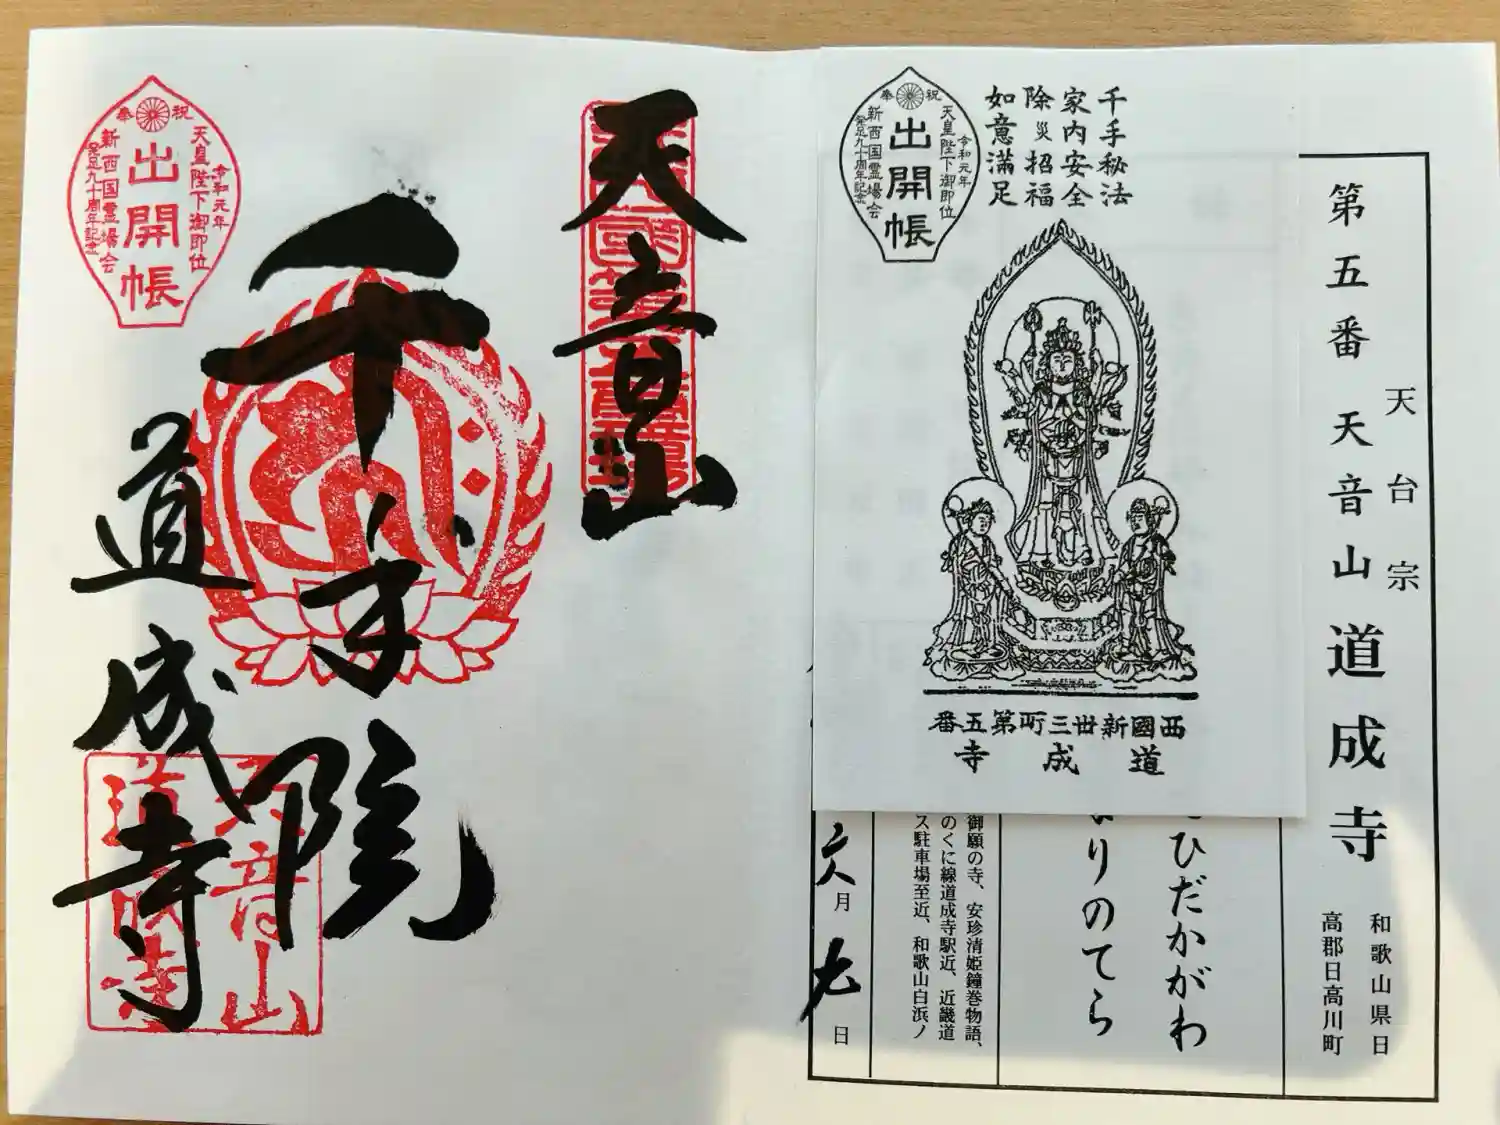 第五番 天音山 道成寺
天台宗
和歌山県日
高郡日高川町
ひだかがわ
りのてら
御願の寺、安珍清姫鐘巻物語、
のくに線道成寺駅近、近畿道
ス駐車場至近、和歌山白浜ノ
六月九日
千手秘法
家内安全
除災招福
如意満足
奉祝
令和元年
天皇陛下御即位
出開帳
新西国霊場会
発足九十周年記念
西國新丗三所第五番
道成寺
天音山
千手院
道成寺
奉祝
令和元年
天皇陛下御即位
出開帳
新西国霊場会
発足九十周年記念
天音山
道成寺